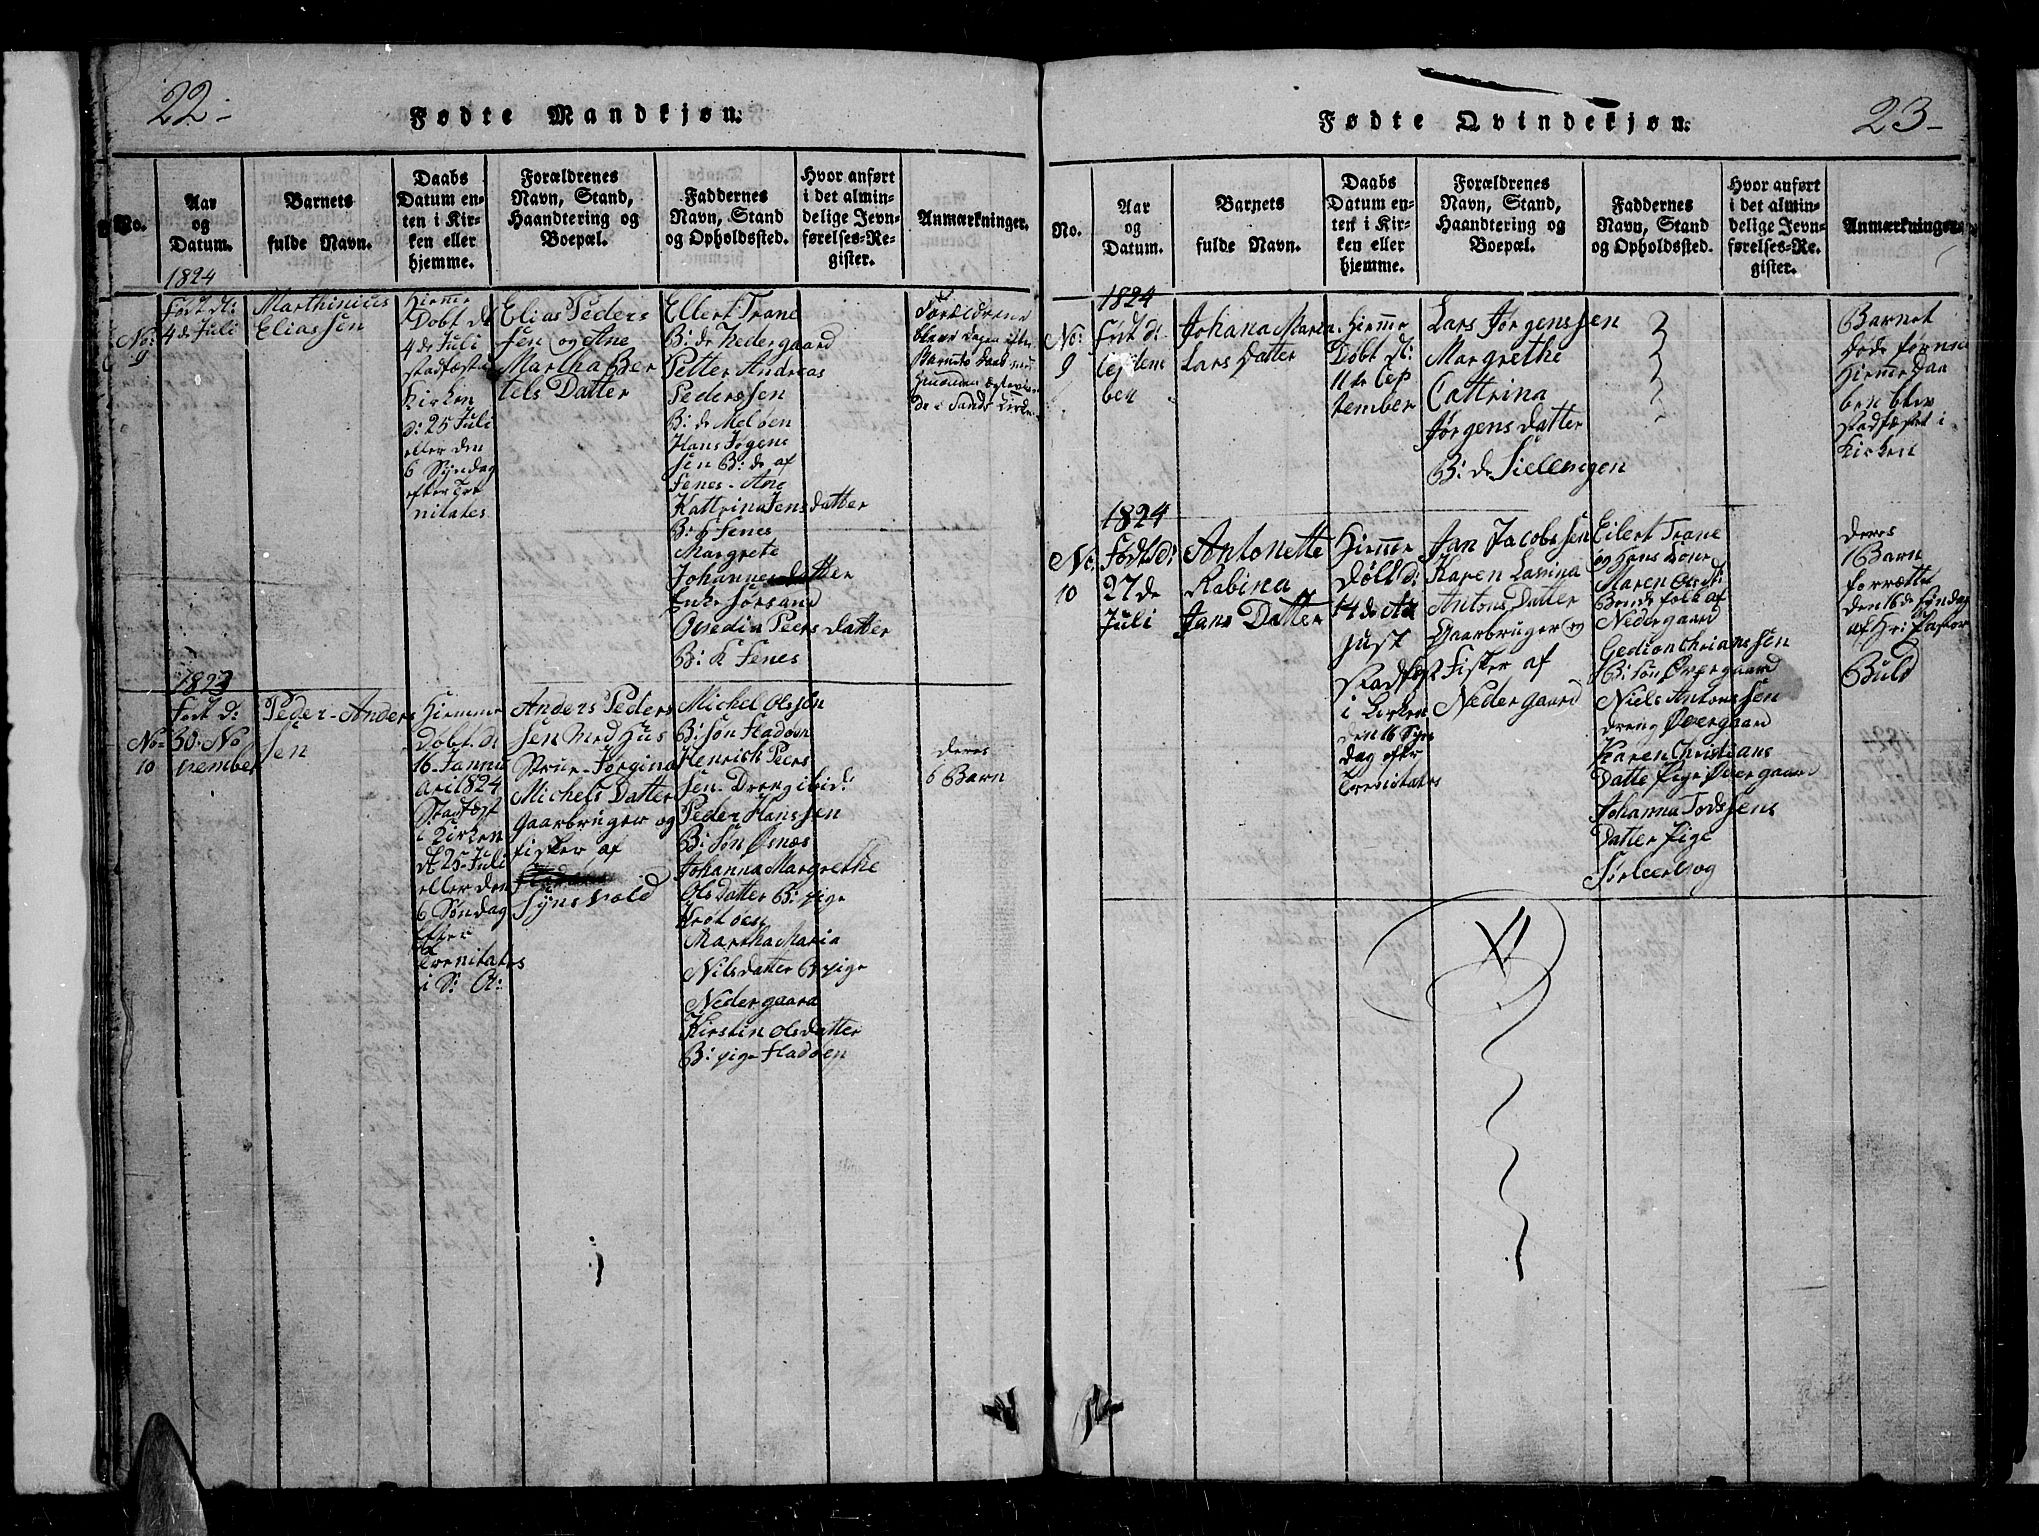 22-
Fødte Mandkjøn.
No.
Aar
og
Datum.
Barnets
fulde Navn.
Daabs
Datum en-
ten i Kir-
ken eller
hjemme.
Forældrenes
Navn, Stand,
Haandtering og
Boepæl.
Faddernes
Navn, Stand
og Opholdssted.
Hvor anført
i det almin-
delige Jevn-
førelses-Re-
gister.
Anmærkninger.
No:
9
1824
Født d:
4 de Juli
Marthinius
Eliassen
Hiemme
Døbt d
4 de Juli
stadfæste
Kirken
D: 25 Juli
eller den
6 Syndag
efter Tre
nitates
Elias Peders
sen og Ane
Martha Ber
tels Datter
Ellert Trane
B: de Nedergaard
Petter Andreas
Pederssen
B: de Meløen
Hans Jøgens
sen B: de af
Fenes - Ane
Kattrina Jens datter
B: k Fenes
Margrete
Johannes datter
Enke Sørsand
Peers datter
B: k Fenes
Forældrene
No:
10
1823
Født d:
30 No
vember
Peder Anders
sen
Hiemme
Døbt d
16 Janu
ari 1824
Stadfæst
i Kirken
d 25 Juli
eller den
6 Søndag
Efter
Trenitates
i S: A:
Anders Peders
sen med Hus
strue - Jørgina
Michels Datter
Gaarbruger og
fisker af
Synsvold
Michel Olssøn
B: søn Fladøen
Henrich Peers
sen - Dreng ibid:
Peder Hanssen
B: Søn Øsnæs
Johanna Margrethe
Olsdatter B: pige
Martha Maria
Nilsdatter B pige
Nedergaard
Kirstin Olsdatter
B: pige Fladøen
deres
6 Barn
23-
Fødte Qvindekjøn.
No.
Aar
og
Datum.
Barnets
fulde Navn.
Daabs
Datum en-
ten i Kir-
ken eller
hjemme.
Forældrenes
Navn, Stand,
Haandtering og
Boepæl.
Faddernes
Navn, Stand
og Opholdssted.
Hvor anført
i det almin-
delige Jevn-
førelses-Re-
gister.
Anmærkninger.
No:
9
1824
Født d:
Johana Maria
Lars Datter
Hiemme
Døbt d:
11 de Sep
tember
Lars Jørgenssen
Margrethe
Cattrina
Jørgens datter
B: de
Barnet
døde
Hieme Daa
ben blev
stadfæstet i
Kirken
No:
10
1824
Født d:
27 de
Juli
Antonette
Rabina
Jans Datter
Hiemme
Døbt d:
14 de Au
gust
Stadfæst
i Kirken
den 16 Syn
dag efter
Trenitates
Jan Jacobssen
Karen Lavina
Antons Datter
Gaarbruger og
Fisker af
Nedergaard
Eilert Trane
og Hans Kone
Maren Ols d:
Bonde folk af
Nedergaard
Gedion Chrianssen
B: søn Øvergaard
Niels Antonssen
dreng Øvergaard
Karen Christians
Datte Pige Øvergaard
Johanna Todssens
Datter Pige
deres
1 Barn
forrættet
den 16 de Syndag
af Hr: Pastor
Buld